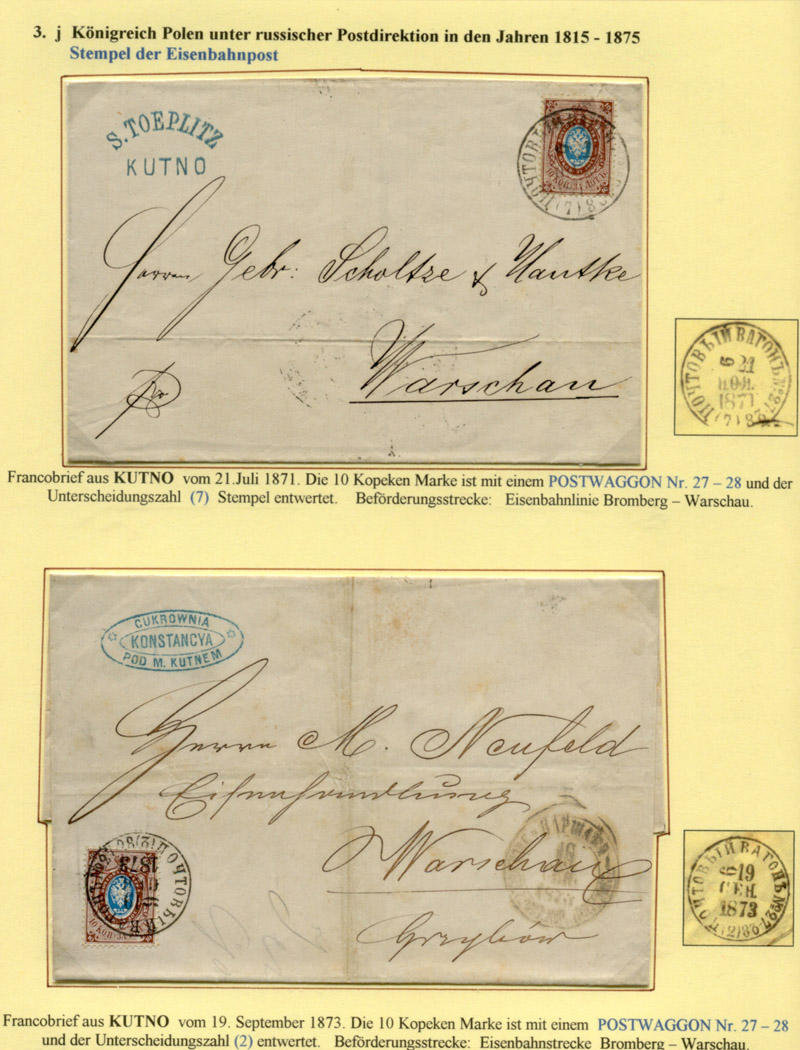 3. j Königreich Polen unter russischer Postdirektion in den Jahren 1815 - 1875
Stempel der Eisenbahnpost
S. TOEPLITZ
KUTNO
ПОЧТОВЫЙ
(7)
Herren Gebr: Scholtze & Hantke
Warschau
ПОЧТОВЫЙ ВАГОНЪ №27
21
1871
(7)
Francobrief aus KUTNO vom 21.Juli 1871. Die 10 Kopeken Marke ist mit einem POSTWAGGON Nr. 27 – 28 und der
Unterscheidungszahl (7) Stempel entwertet. Beförderungsstrecke: Eisenbahnlinie Bromberg – Warschau.
CUKROWNIA
KONSTANCYA
POD M. KUTNEM
Herrn M. Neufeld
Eisenhandlung
Warschau
Grzybów
ПОЧТОВЫЙ
1873
ПОЧТОВЫЙ ВАГОНЪ №27
19
СЕН.
1873
(2)
Francobrief aus KUTNO vom 19. September 1873. Die 10 Kopeken Marke ist mit einem POSTWAGGON Nr. 27 – 28
und der Unterscheidungszahl (2) entwertet. Beförderungsstrecke: Eisenbahnstrecke Bromberg – Warschau.